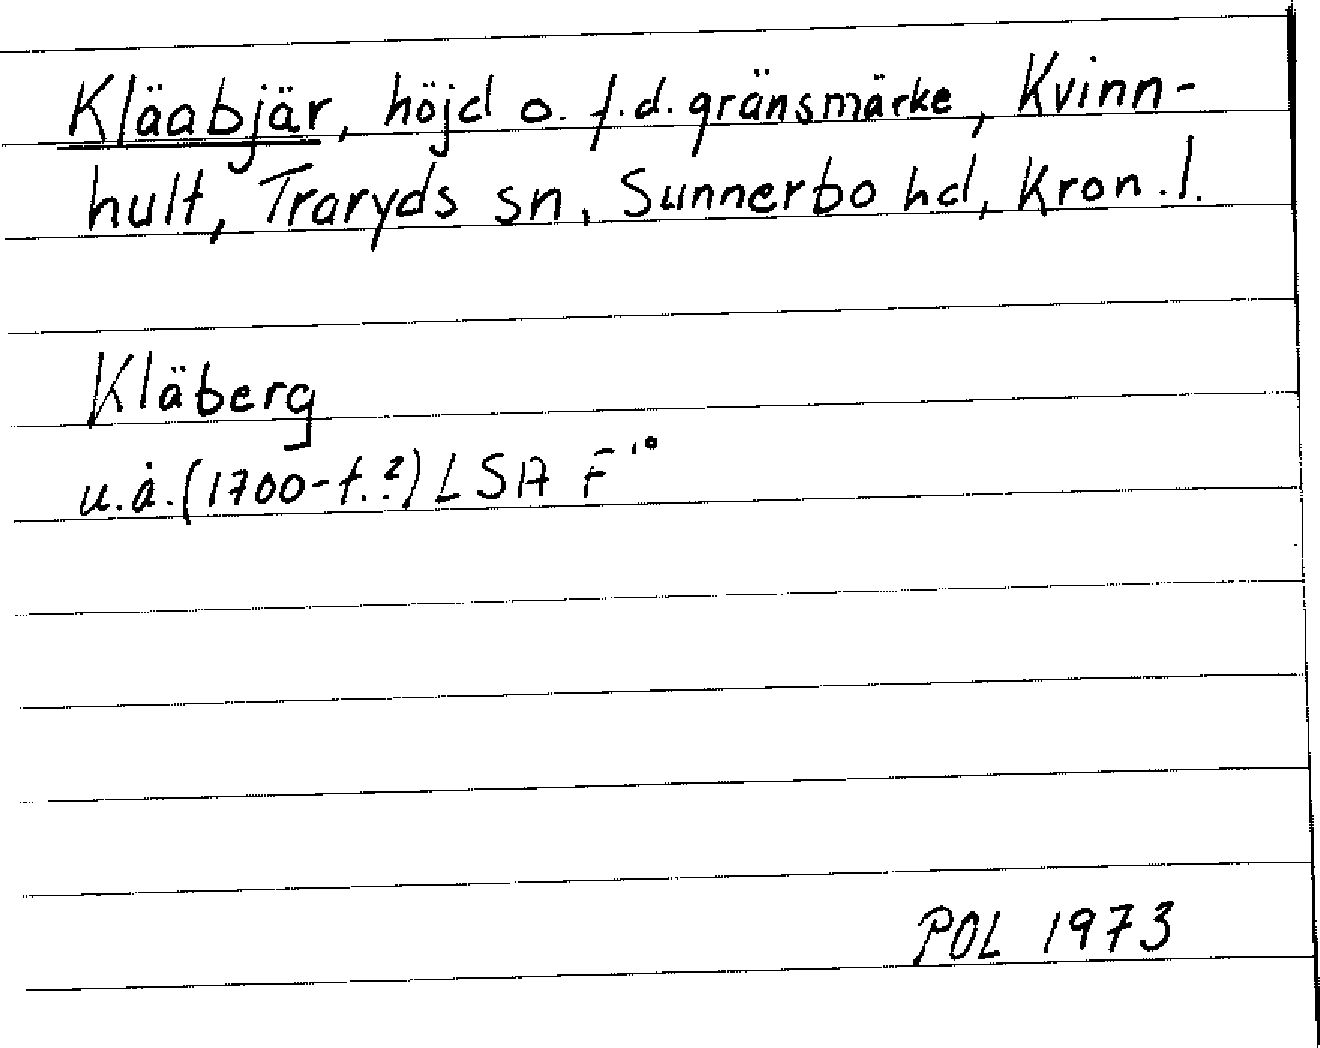 Kläabjär, höjd o. f.d. gränsmärke, Kvinn-
hult, Traryds sn, Sunnerbo hd, Kron.l.
Kläberg
u.å. (1700-t.?) LSA F¹⁰
POL 1973